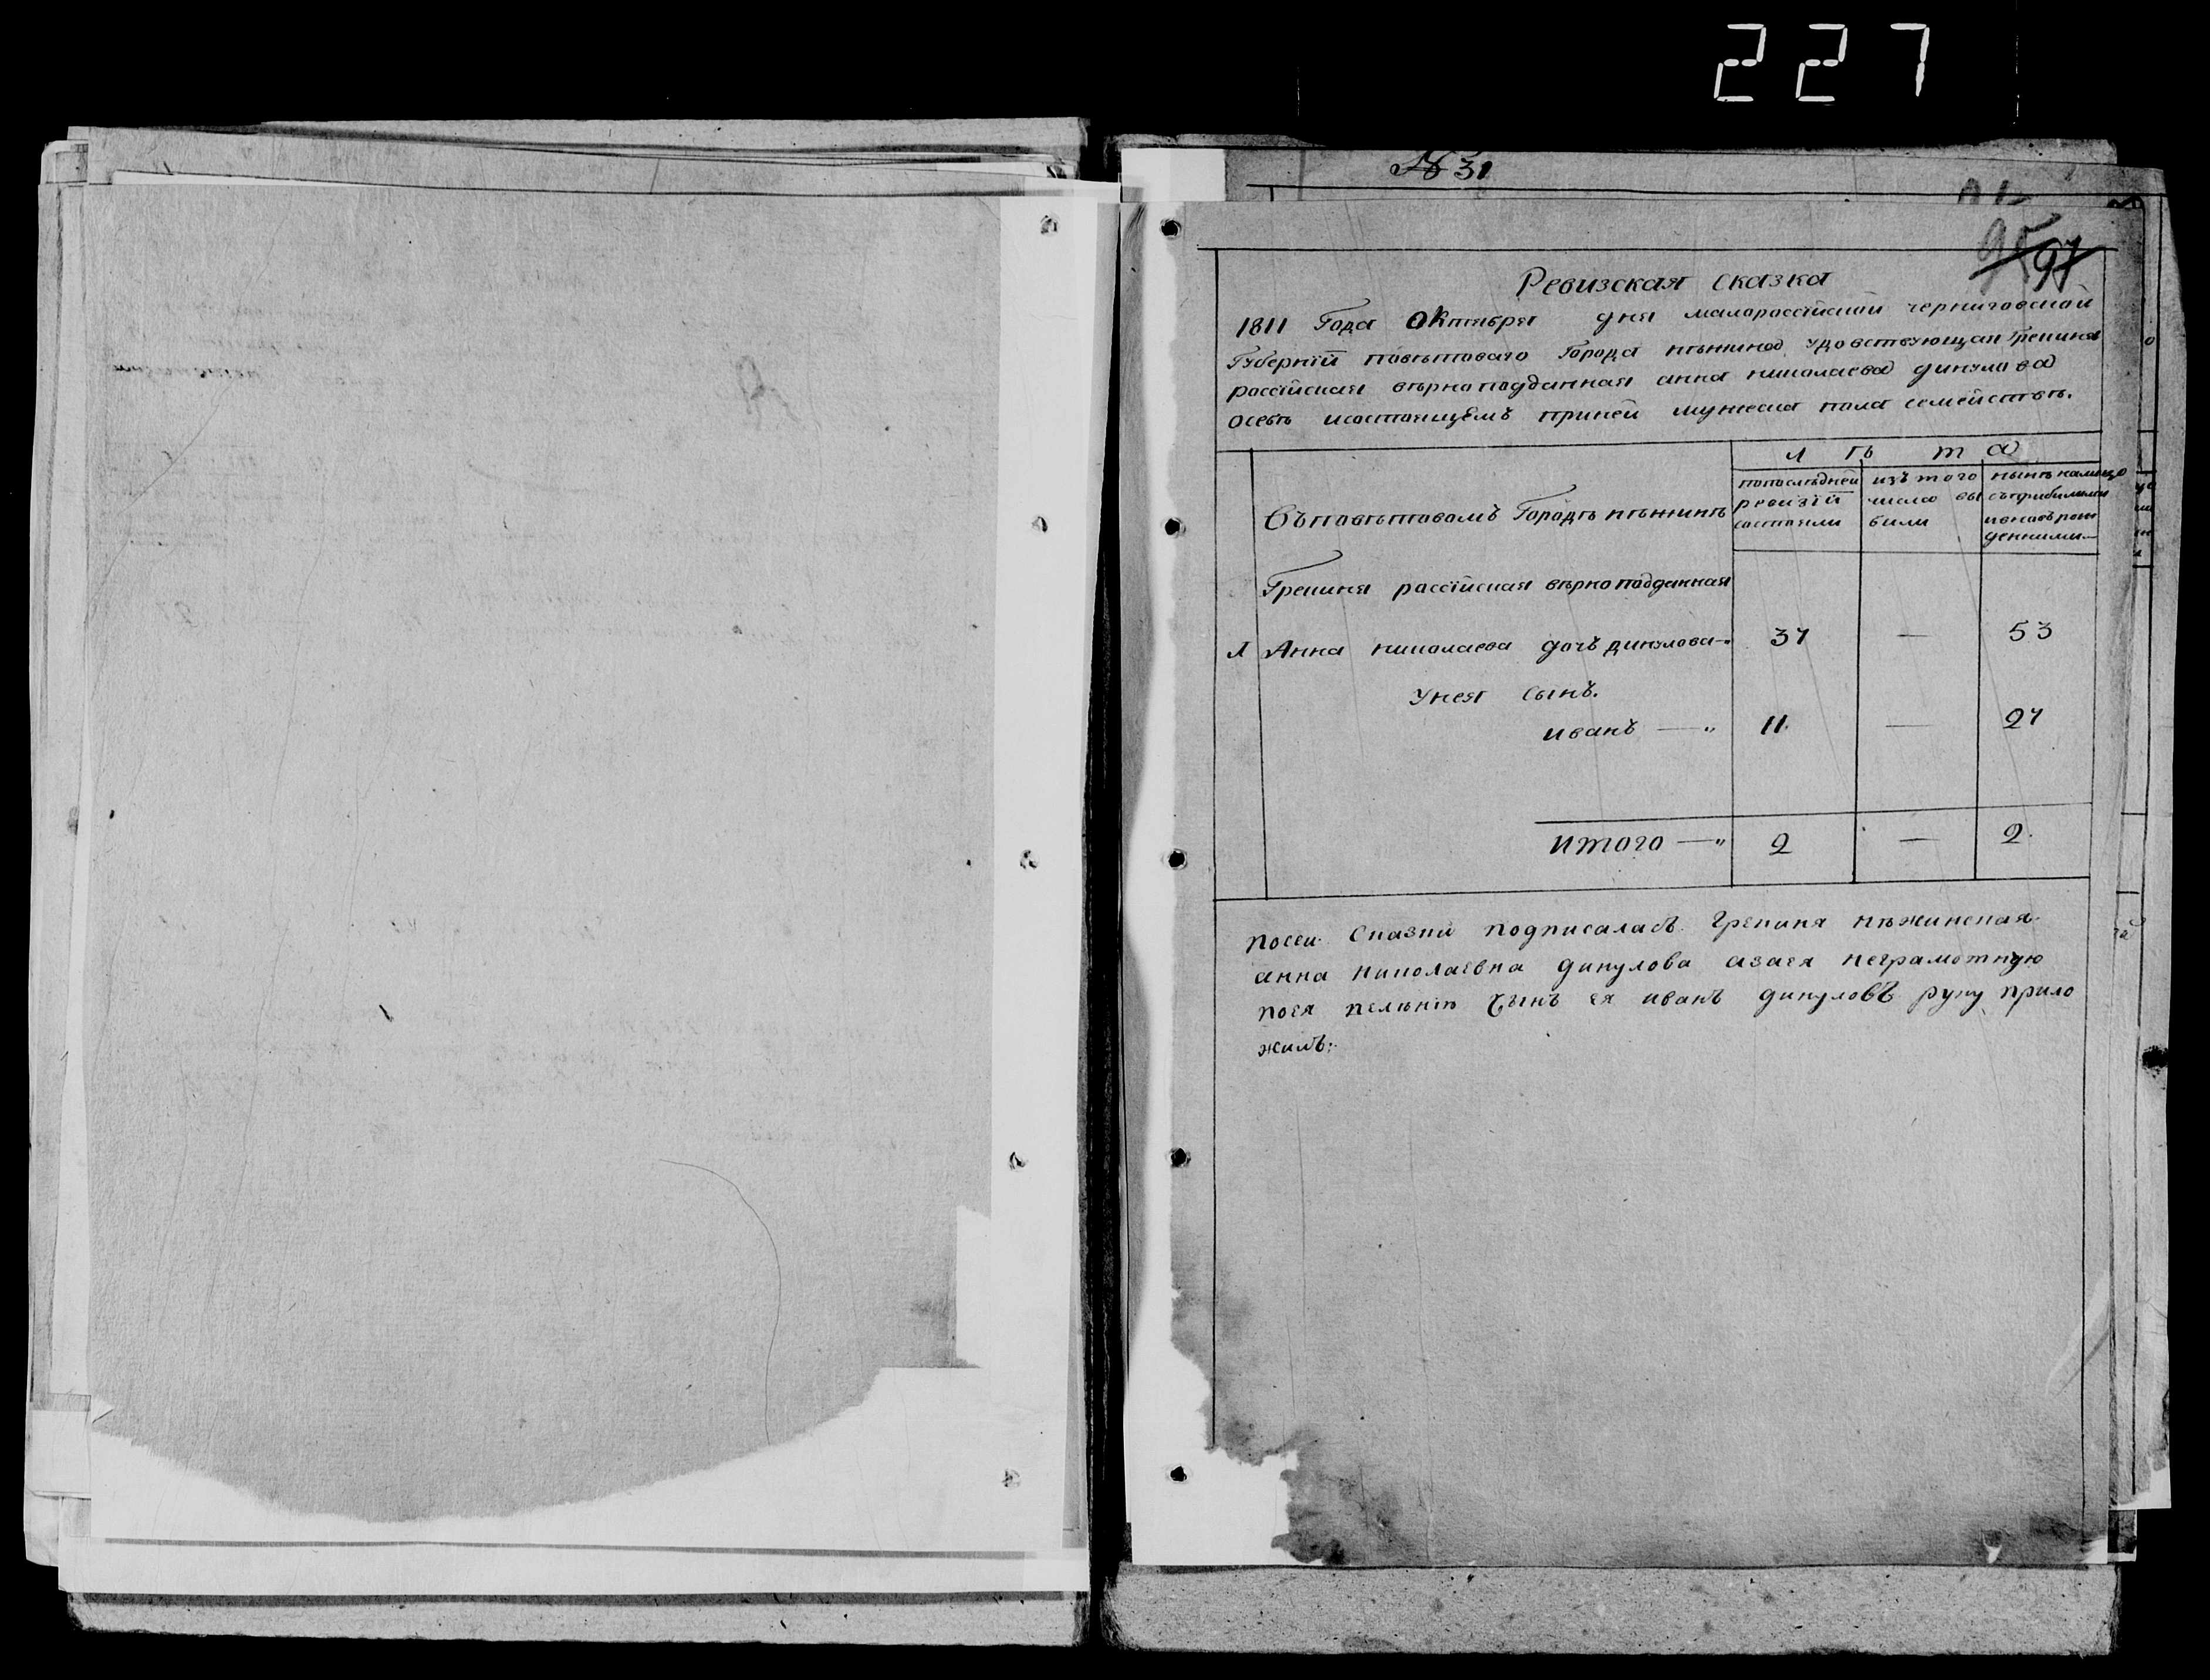 227
№ 31
95 97
Ревизская сказка
1811 Года Октября дня малороссїйской черниговской
Губернїй повѣтоваго Города нѣжина удовствующая Грекиня
россїйская вѣрноподданная анна николаева дикулова
осебѣ исостоящемъ принеи мужеска пола семействѣ.
Л Ѣ Т А
попослѣдней изъ того нынѣ налицо
ревизїй числа вы съприбилими
состояли били ивновърож
денними
Въповѣтовомъ Городѣ нѣжинѣ
Грекиня россїйская вѣрноподданная
1 Анна николаева дочъ дикулова 37 — 53
Унея сынъ.
иванъ — 11. — 27
итого — 2 — 2.
посеи сказки подписаласъ грекиня нѣжинская
анна николаевна дикулова азаея неграмотную
поея велѣнію сынъ ея иванъ дикуловъ руку прило
жилъ: